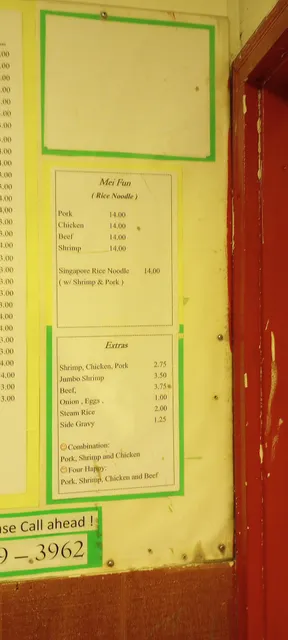 Mei Fun
( Rice Noodle )
Pork 14.00
Chicken 14.00
Beef 14.00
Shrimp 14.00
Singapore Rice Noodle 14.00
( w/ Shrimp & Pork )
Extras
Shrimp, Chicken, Pork 2.75
Jumbo Shrimp 3.50
Beef, 3.75
Onion , Eggs , 1.00
Steam Rice 2.00
Side Gravy 1.25
Combination:
Pork, Shrimp and Chicken
Four Happy:
Pork, Shrimp, Chicken and Beef
Call ahead !
9 – 3962